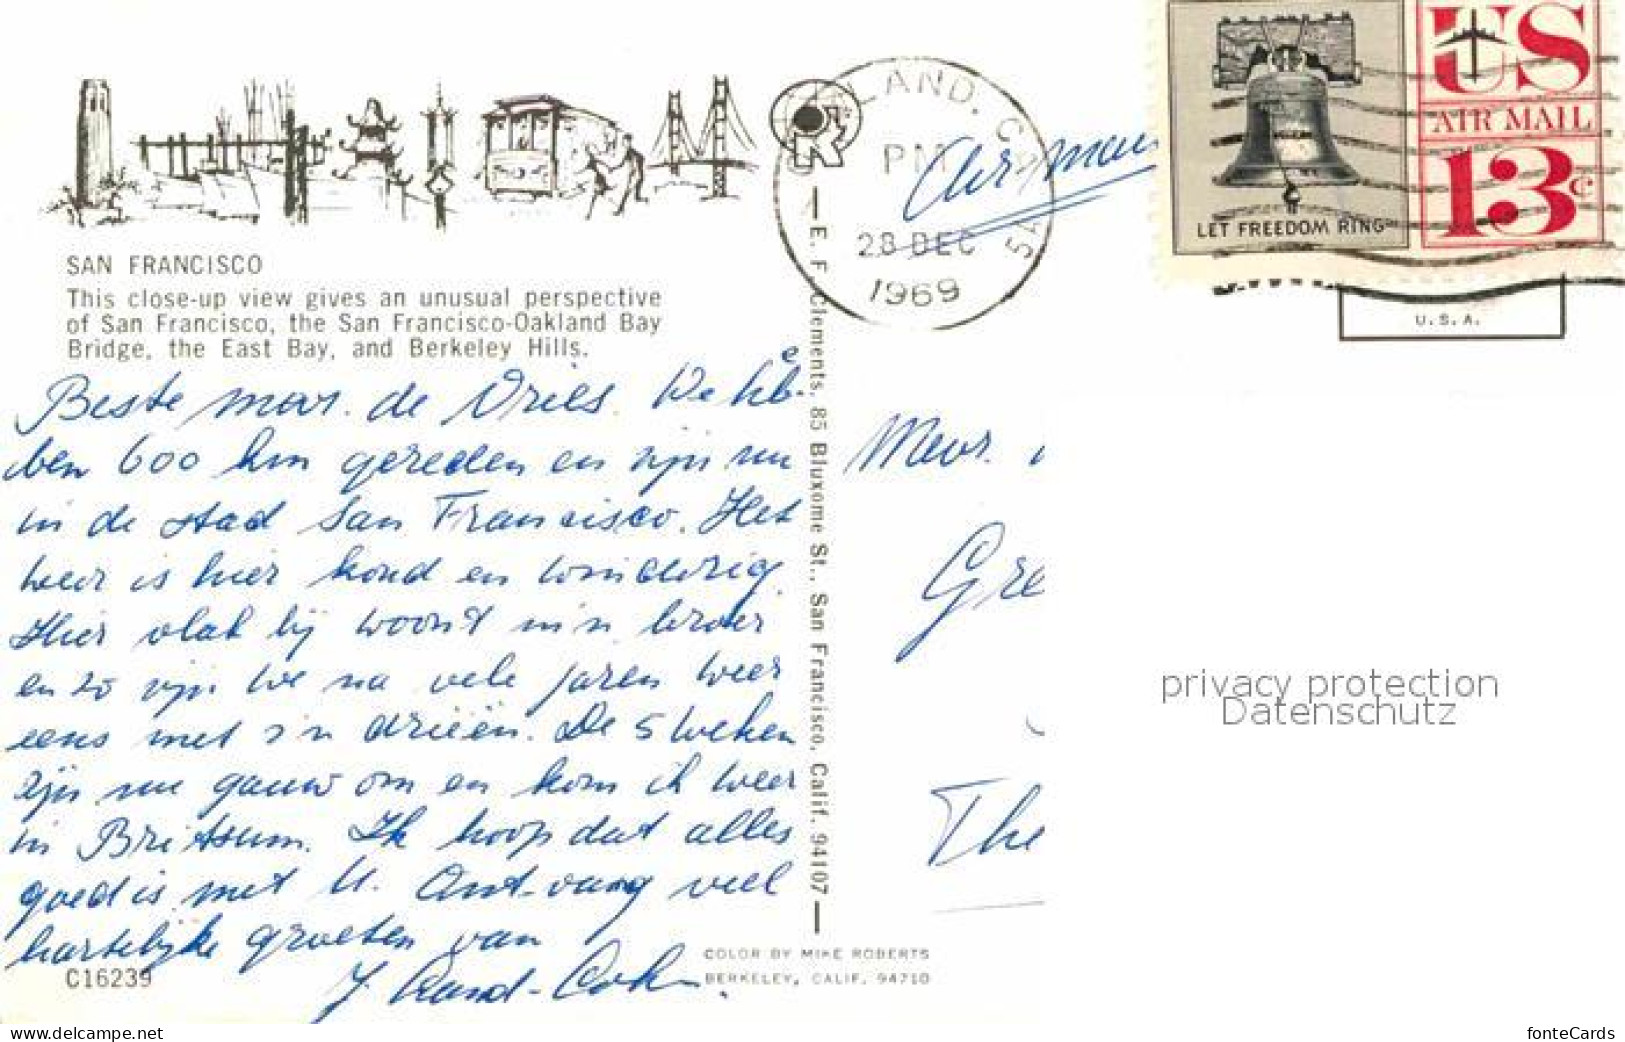 LAND, C
PM
28 DEC
1969
Air mail
US
AIR MAIL
13c
LET FREEDOM RING
U.S.A.
SAN FRANCISCO
This close-up view gives an unusual perspective
of San Francisco, the San Francisco-Oakland Bay
Bridge, the East Bay, and Berkeley Hills.
Beste mevr. de Vries. We heb-
ben 600 km gereden en zijn nu
in de stad San Francisco. Het
weer is hier koud en winderig.
Hier vlak bij woont m'n broer
en zo zijn we na vele jaren weer
eens met z'n drieën. De 5 weken
zijn nu gauw om en kom ik weer
in Britsum. Ik hoop dat alles
goed is met U. Ontvang veel
hartelijke groeten van
C16239
E. F. Clements, 85 Bluxome St., San Francisco, Calif. 94107
COLOR BY MIKE ROBERTS
BERKELEY, CALIF. 94710
Mevr.
Gre
The
privacy protection
Datenschutz
www.delcampe.net
fonteCards